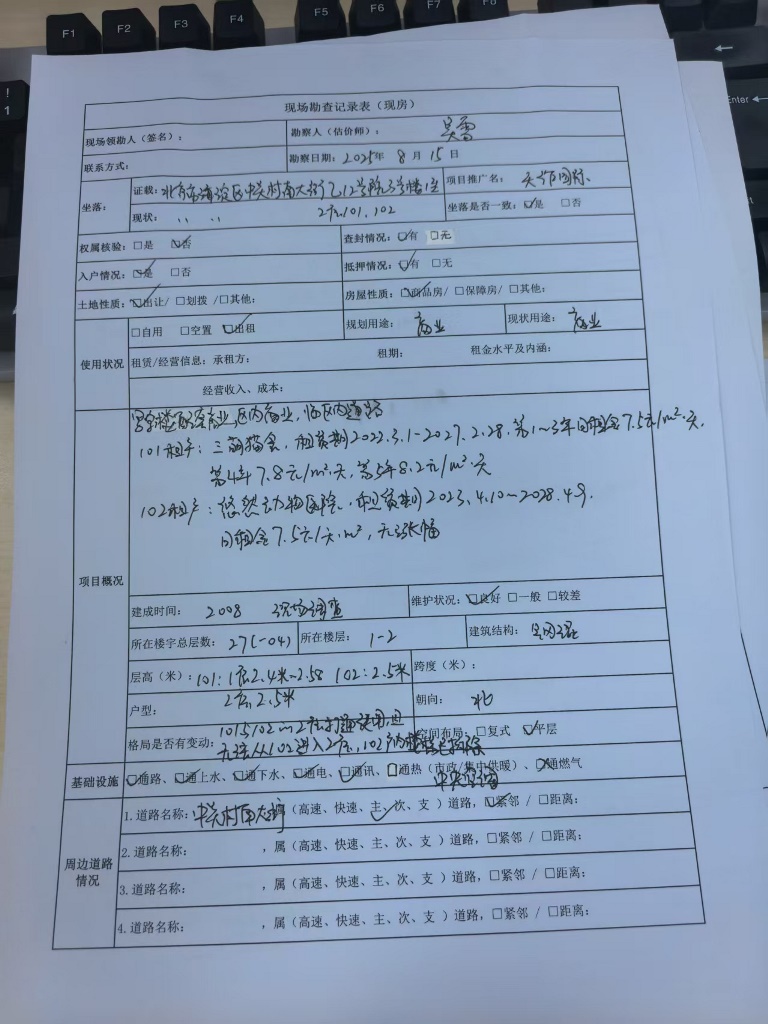 F1 F2 F3 F4 F5 F6 F7 F8
! 1
Enter
现场勘查记录表（现房）
现场领勘人（签名）： 勘察人（估价师）： 吴雷
联系方式： 勘察日期：2025年 8 月 15 日
坐落： 证载：北京市海淀区中关村南大街乙12号院3号楼1至 项目推广名：天作国际
现状：〃 〃 2层101,102 坐落是否一致：☑是 □否
权属核验：□是 ☑否 查封情况：☑有 □无
入户情况：☑是 □否 抵押情况：☑有 □无
土地性质：☑出让/ □划拨 /□其他： 房屋性质：☑商品房/ □保障房/ □其他：
使用状况 □自用 □空置 ☑出租 规划用途：商业 现状用途：商业
租赁/经营信息：承租方： 租期： 租金水平及内涵：
经营收入、成本：
项目概况
写字楼配套商业，区内商业，临区内道路
101租户：三萌猫舍，租赁期2022.3.1-2027.2.28.第1～3年日租金7.5元/m²·天，
第4年7.8元/m²·天，第5年8.2元/m²·天
102租户：悠然动物医院，租赁期2023.4.10～2028.4.9.
日租金7.5元/天·m²，无涨幅
建成时间：2008 现场调查 维护状况：☑良好 □一般 □较差
所在楼宇总层数：27(-04) 所在楼层：1-2 建筑结构：钢混
层高（米）：101:1层2.4米~2.58 102:2.5米 跨度（米）：
2层2.5米
户型： 朝向：北
格局是否有变动：101与102的2层打通使用,且 空间布局：□复式 ☑平层
无法从102进入2层，102户内楼梯已拆除
基础设施 ☑通路、☑通上水、☑通下水、☑通电、☑通讯、□通热（市政/集中供暖）、☑通燃气
中央空调
周边道路情况
1.道路名称：中关村南大街（高速、快速、主、次、支 ）道路，☑紧邻 / □距离：
2.道路名称： ，属（高速、快速、主、次、支 ）道路，□紧邻 / □距离：
3.道路名称： ，属（高速、快速、主、次、支 ）道路，□紧邻 / □距离：
4.道路名称： ，属（高速、快速、主、次、支 ）道路，□紧邻 / □距离：